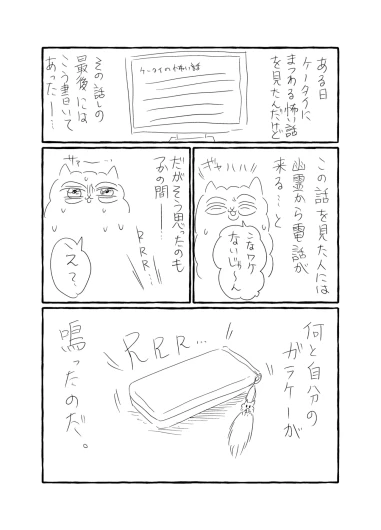 ある日
ケータイに
まつわる怖い話
を見たんだけど
ケータイの怖い話
その話しの
最後には
こう書いて
あった――…
この話を見た人には
幽霊から電話が
来る…と
ギャハハハ
こなワケ
ないじゃ〜ん
だがそう思ったのも
つかの間――
ギャー…
RRR…
え?
何と自分の
ガラケーが
RRR…
鳴ったのだ。